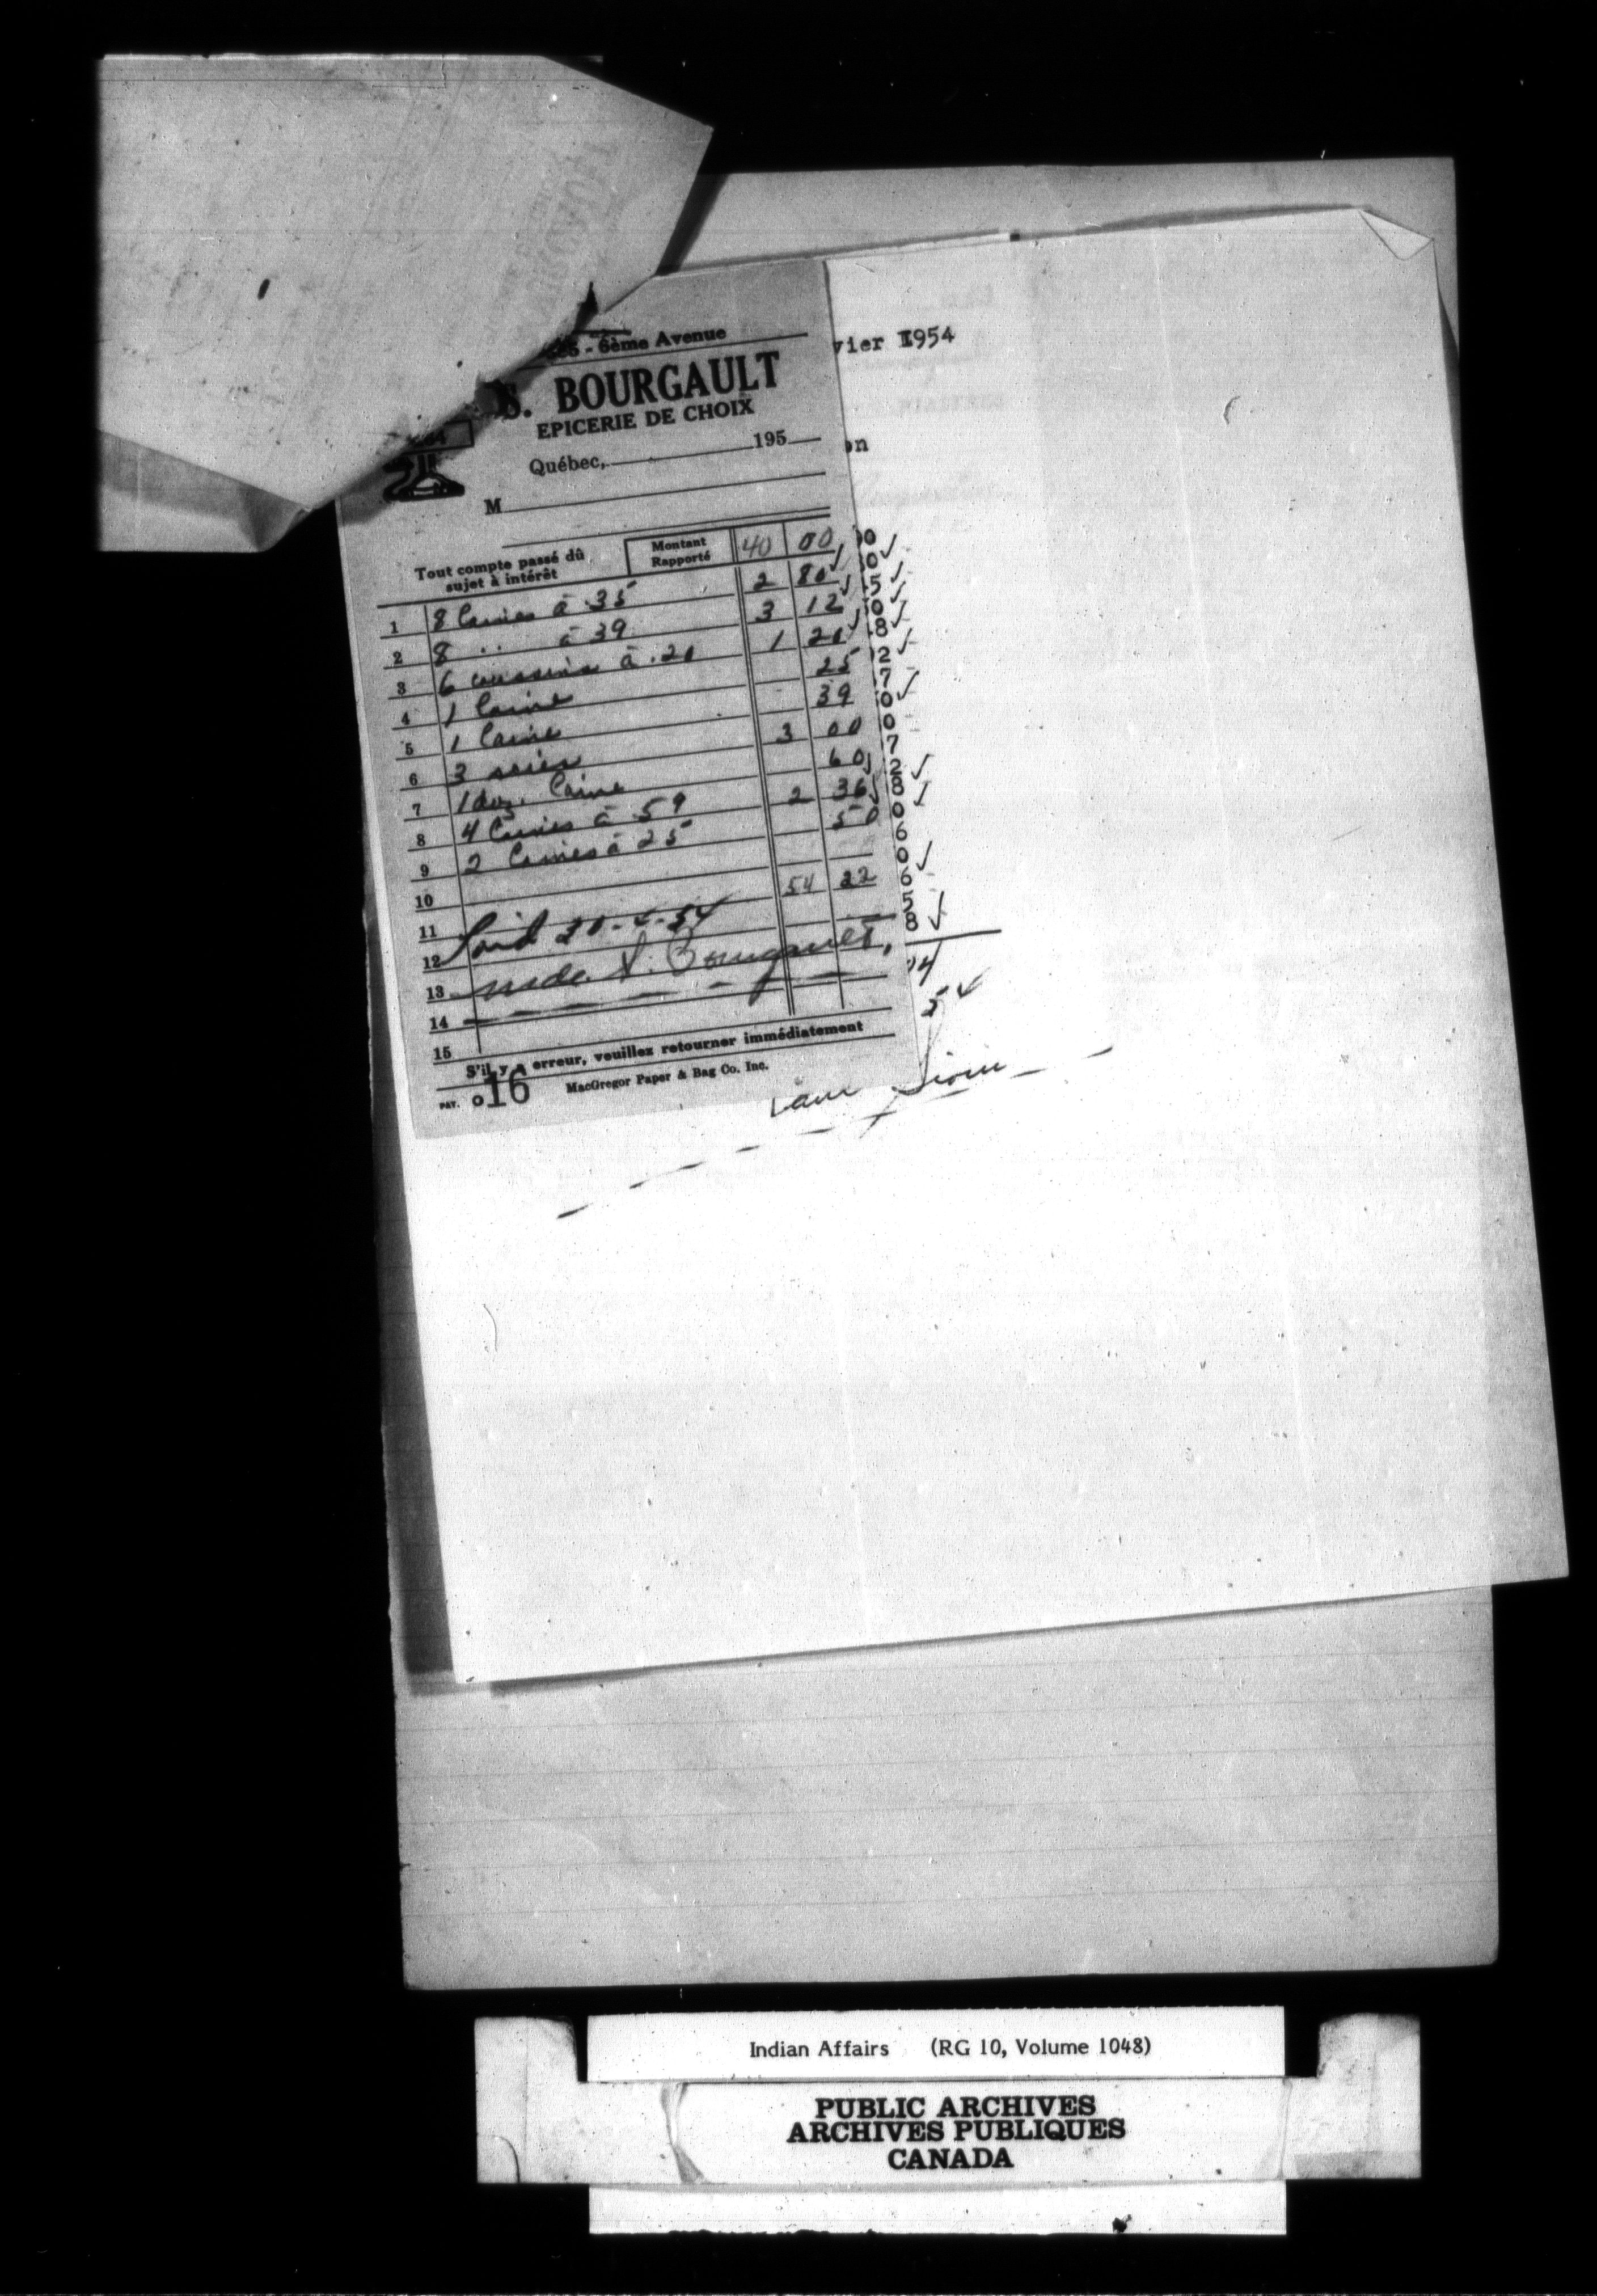 6ème Avenue
S. BOURGAULT
EPICERIE DE CHOIX
Québec, 195
M
Tout compte passé dû sujet à intérêt
Montant Rapporté 40 00
1 8 Laines à 35 2 80 ✓
2 8 " à 39 3 12 ✓
3 6 coussins à .20 1 20 ✓
4 1 Laine 25
5 1 Laine 39
6 3 soies 3 00
7 1 doz. Laine 60 ✓
8 4 Laines à 59 2 36 ✓
9 2 Laines à 25 50
10
11 54 22
12 Paid 20-4-54
13 mde S. Bourgault,
14
15
S'il y a erreur, veuillez retourner immédiatement
PAT. 016 MacGregor Paper & Bag Co. Inc.
vier 1954
on
00
0 ✓
5 ✓
0 ✓
8 ✓
2 ✓
7
0 ✓
0
7
2 ✓
8 ✓
0
6
0 ✓
6
5
8 ✓
04
54
Sioui
Indian Affairs (RG 10, Volume 1048)
PUBLIC ARCHIVES
ARCHIVES PUBLIQUES
CANADA